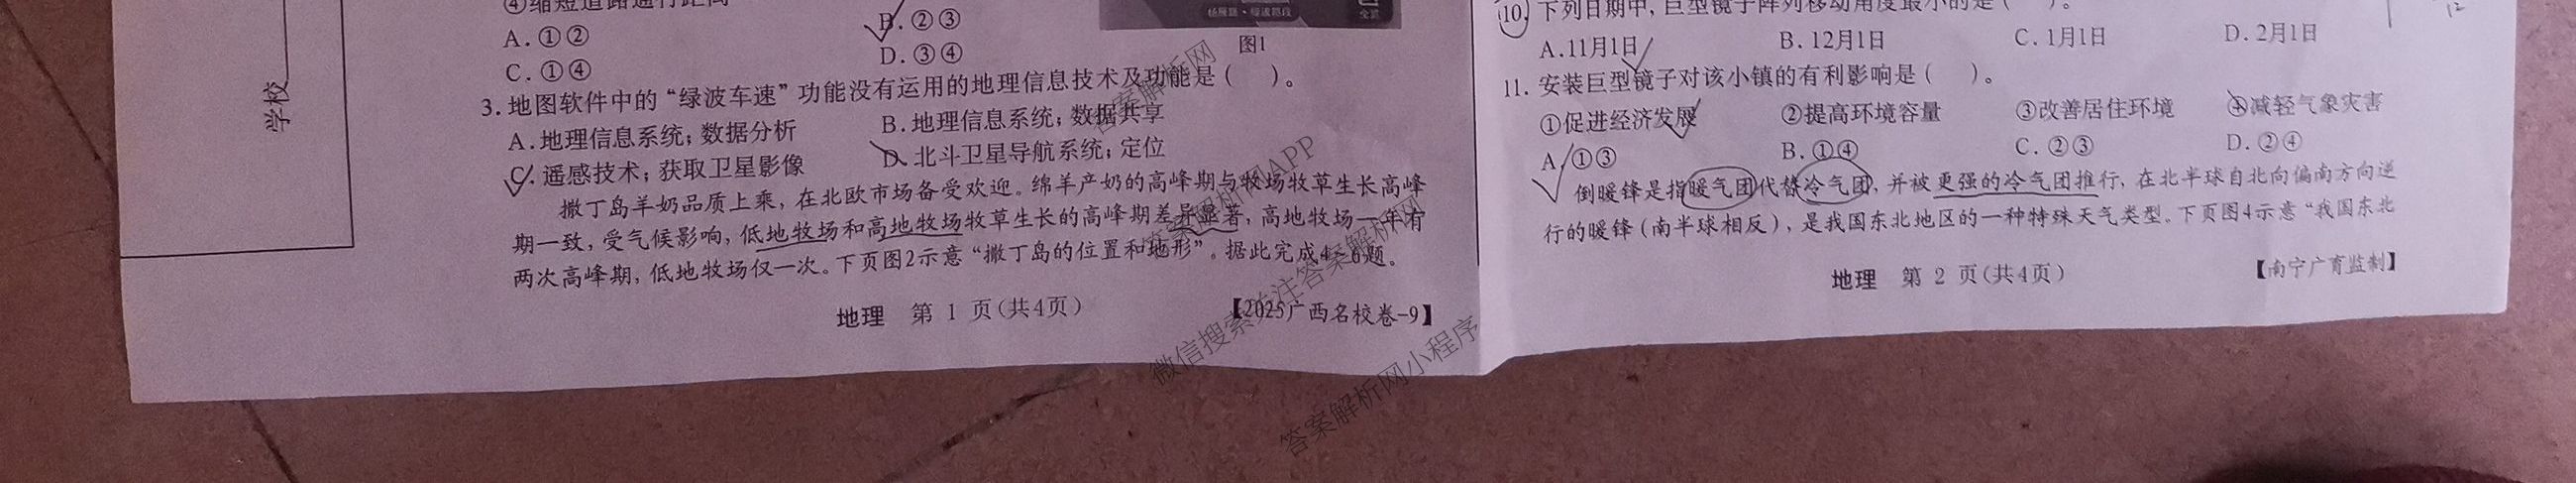 学校
④缩短道路通行距离
A.①②
B.②③
C.①④
D.③④
图1
3.地图软件中的“绿波车速”功能没有运用的地理信息技术及功能是( )。
A.地理信息系统;数据分析
B.地理信息系统;数据共享
C.遥感技术;获取卫星影像
D.北斗卫星导航系统;定位
撒丁岛羊奶品质上乘,在北欧市场备受欢迎。绵羊产奶的高峰期与牧场牧草生长高峰
期一致,受气候影响,低地牧场和高地牧场牧草生长的高峰期差异显著,高地牧场一年有
两次高峰期,低地牧场仅一次。下页图2示意“撒丁岛的位置和地形”。据此完成4~6题。
地理 第 1 页(共4页)
【2025广西名校卷-9】
10.下列日期中,巨型镜子阵列移动角度最小的是( )。
A.11月1日
B.12月1日
C.1月1日
D.2月1日
11.安装巨型镜子对该小镇的有利影响是( )。
①促进经济发展
②提高环境容量
③改善居住环境
④减轻气象灾害
A.①③
B.①④
C.②③
D.②④
倒暖锋是指暖气团代替冷气团,并被更强的冷气团推行,在北半球自北向偏南方向逆
行的暖锋(南半球相反),是我国东北地区的一种特殊天气类型。下页图4示意“我国东北
地理 第 2 页(共4页)
【南宁广育监制】
12
答案解析网
答案解析网APP
微信搜索关注答案解析网
答案解析网小程序